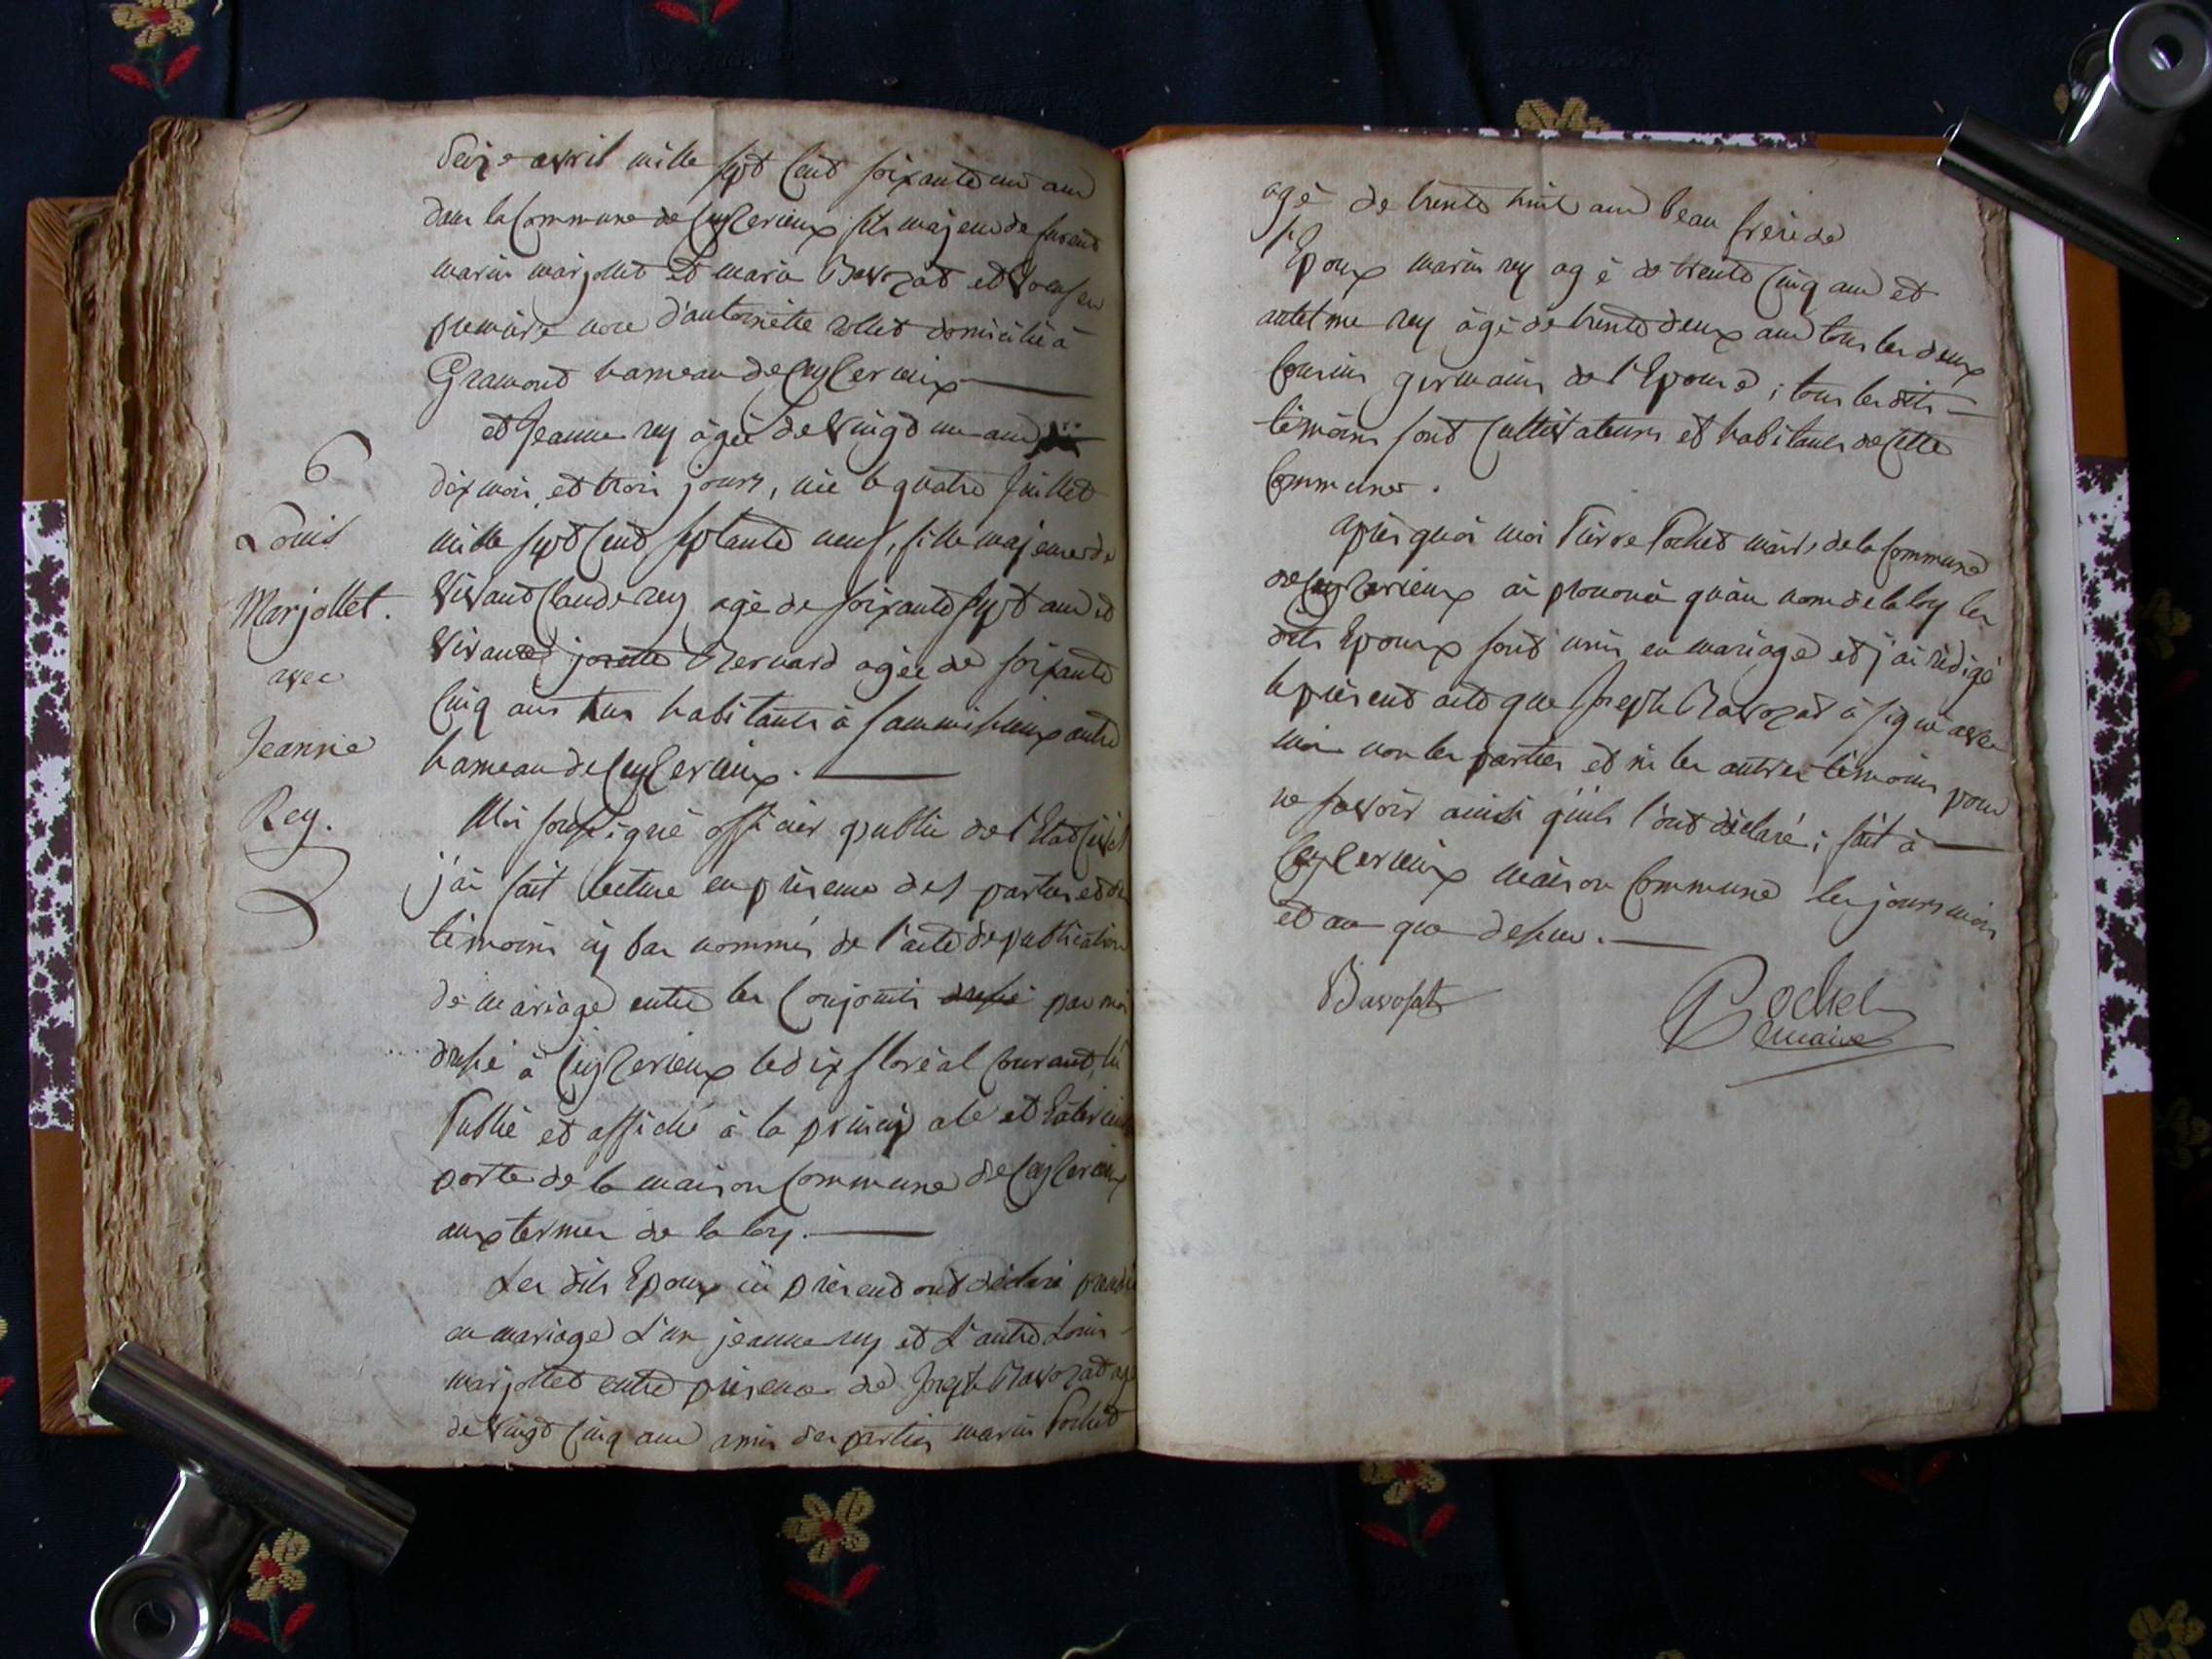 Seize avril mille sept Cent soixante un an
dans la Commune de Ceyzerieux fils majeur de furent
marin marjollet et marie Bavozat et
première noce d'antoinette rollet domicilié à
Gramond hameau de Ceyzerieux
et Jeanne rey âgée de vingt un an
dix mois et trois jours, née le quatre Juillet
mille sept Cent septante neuf, fille majeure de
6
Louis
Marjollet.
avec
Jeanne
Rey.
vivant Claude rey agé de soixante sept and et
vivante josette Bernard agée de soixante
Cinq ans tous habitants à autre
hameau de Ceyzerieux.
Moi soussigné officier public de l'Etat Civil
j'ai fait lecture en présence des parties et de
témoins cy bas nommés de l'acte de publication
de mariage entre les Conjoints dressé par moi
dressé à Ceyzerieux le dix floréal Courant, lu
Publié et affiché à la principale et
porte de la maison Commune de Ceyzerieux
aux termes de la loy.
Les dits Epoux ici présent ont déclaré prendre
en mariage L'un jeanne rey et L'autre Louis
marjollet entre présence de Joseph Bavozat agé
de vingt Cinq and amis des parties marin Pochet
agé de trente huit and beau frère de
l'Epoux marin rey agé de trente Cinq and et
antelme rey âgé de trente deux and tous les deux
Cousins germains de l'Epouse ; tous les dits
témoins sont Cultivateurs et habitants de Cette
Commune.
après quoi moi Pierre Pochet maire de la Commune
de Ceyzerieux ai prononcé qu'au nom de la loy les
dits Epoux sont unis en mariage et j'ai rédigé
le présent acte que Joseph Bavozat à signé avec
moi non les parties et ni les autres témoins pour
ne savoir ainsi qu'ils l'ont déclaré ; fait à
Ceyzerieux maison Commune les jours mois
et an que dessus.
Bavosat
Pochet
maire